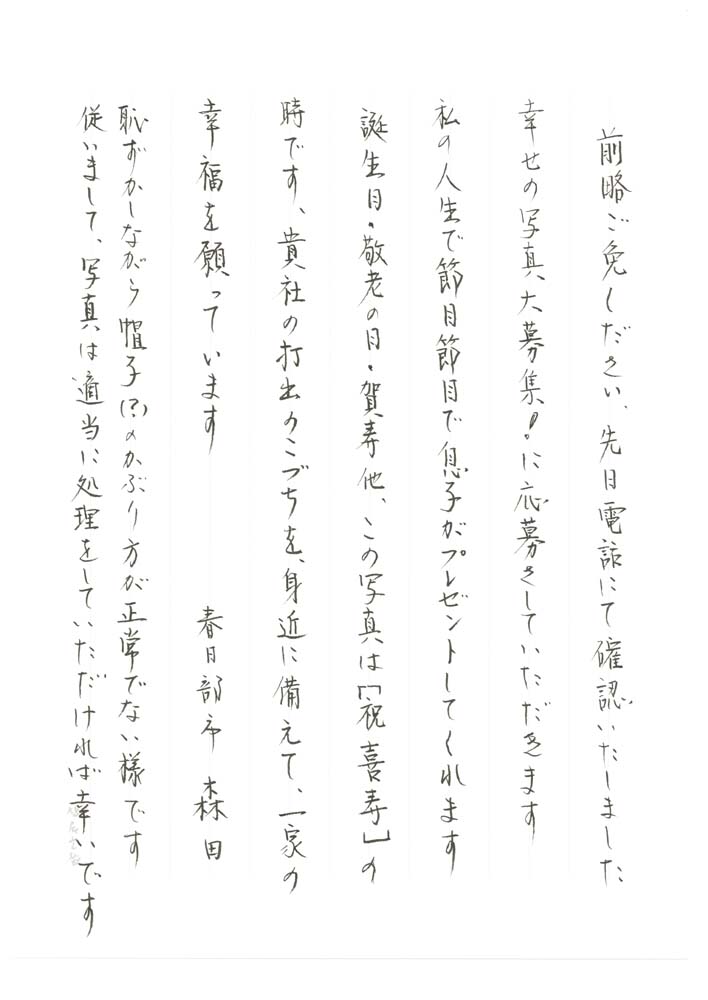 前略ご免しださい、先日電話にて確認いたしました
幸せの写真大募集！に応募さしていただきます
私の人生で節目節目で息子がプレゼントしてくれます
誕生日・敬老の日・賀寿他、この写真は「祝喜寿」の
時です、貴社の打出のこづちを、身近に備えて、一家の
幸福を願っています
春日部市 森田
恥ずかしながら帽子(?)のかぶり方が正常でない様です
従いまして、写真は適当に処理をしていただければ幸いです